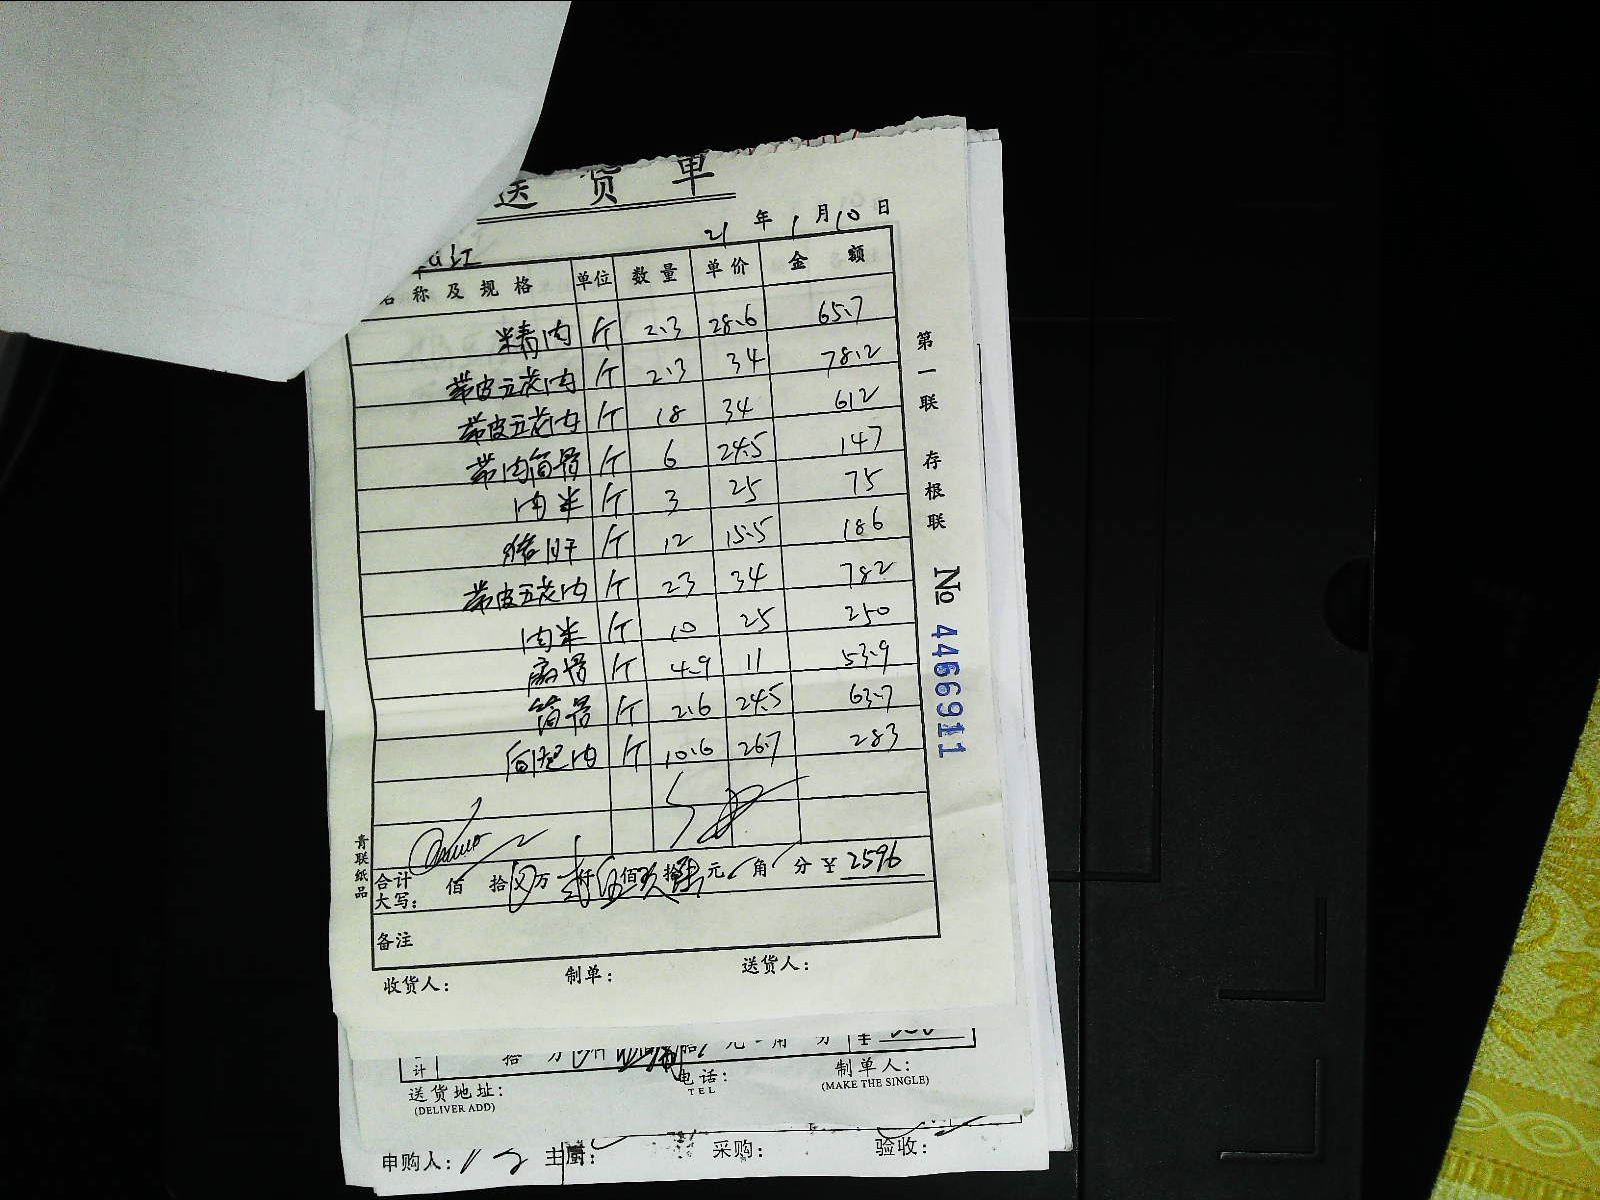 送货单
21年1月10日
名称及规格 单位 数量 单价 金额
精肉 斤 2.3 28.6 65.7
带皮五花肉 斤 2.3 34 78.2
带皮五花肉 斤 18 34 612
带肉筒骨 斤 6 24.5 147
肉米 斤 3 25 75
猪肝 斤 12 15.5 186
带皮五花肉 斤 23 34 782
肉米 斤 10 25 250
扇骨 斤 4.9 11 53.9
筒骨 斤 2.6 24.5 63.7
斤 10.6 26.7 283
合计大写: 佰 拾 万 仟伍佰玖拾陆元 角 分 ¥2596
备注
收货人: 制单: 送货人:
第一联 存根联 No 4466911
青联纸品
计 拾 万 仟 佰 拾 元 角 分
送货地址: 电话: 制单人:
(DELIVER ADD) TEL (MAKE THE SINGLE)
申购人: 主厨: 采购: 验收: